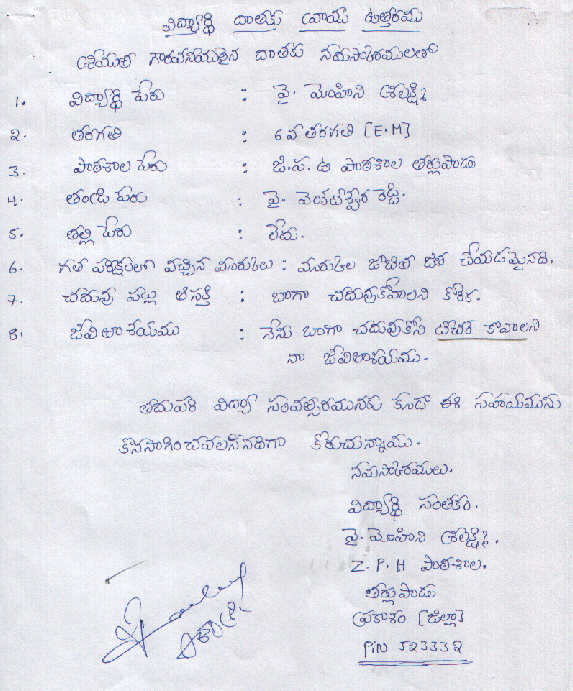 విద్యార్థి దాతకు వ్రాయు ఉత్తరము
శ్రీయుత గౌరవనీయులైన దాతకు నమస్కారములతో
1. విద్యార్థి పేరు : వై. మోహిని శ్రీలక్ష్మి
2. తరగతి : 6వ తరగతి [E.M]
3. పాఠశాల పేరు : జి.ప.ఉ పాఠశాల తర్లుపాడు
4. తండ్రి పేరు : వై. వెంకటేశ్వర రెడ్డి.
5. తల్లి పేరు : లేదు.
6. గత పరీక్షలలో వచ్చిన మార్కులు : మార్కుల జాబితా జత చేయడమైనది.
7. చదువు పట్ల ఆసక్తి : బాగా చదువుకోవాలని కోరిక.
8. జీవితాశయము : నేను బాగా చదువుకొని టీచర్ కావాలని
నా జీవితాశయము.
తదుపరి విద్యా సంవత్సరమునకు కూడా ఈ సహాయమును
కొనసాగించవలసినదిగా కోరుచున్నాము.
నమస్కారములు.
విద్యార్థి సంతకం.
వై. మోహిని శ్రీలక్ష్మి.
Z.P.H పాఠశాల.
తర్లుపాడు
ప్రకాశం [జిల్లా]
PIN 523332